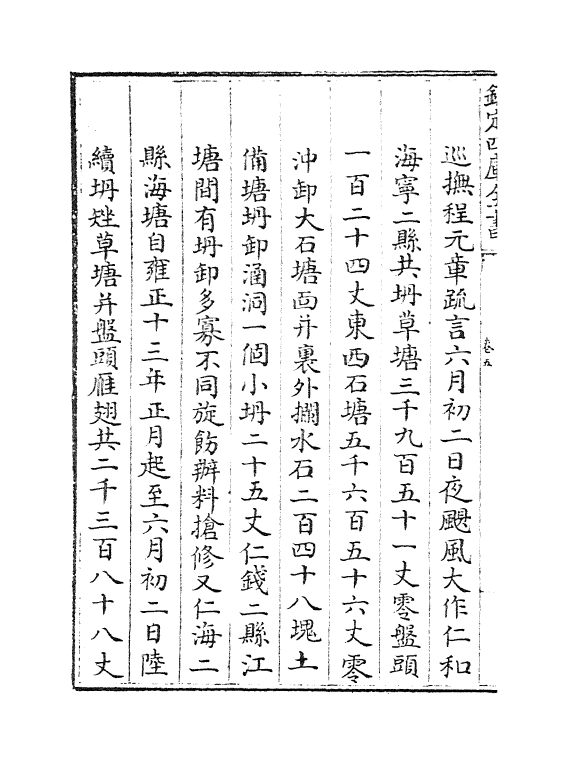 欽定四庫全書
卷五
巡撫程元章疏言六月初二日夜颶風大作仁和
海寧二縣共坍草塘三千九百五十一丈零盤頭
一百二十四丈東西石塘五千六百五十六丈零
沖卸大石塘面并裏外攔水石二百四十八塊土
備塘坍卸涵洞一個小坍二十五丈仁錢二縣江
塘間有坍卸多寡不同旋飭辦料搶修又仁海二
縣海塘自雍正十三年正月起至六月初二日陸
續坍矬草塘并盤頭雁翅共二千三百八十八丈